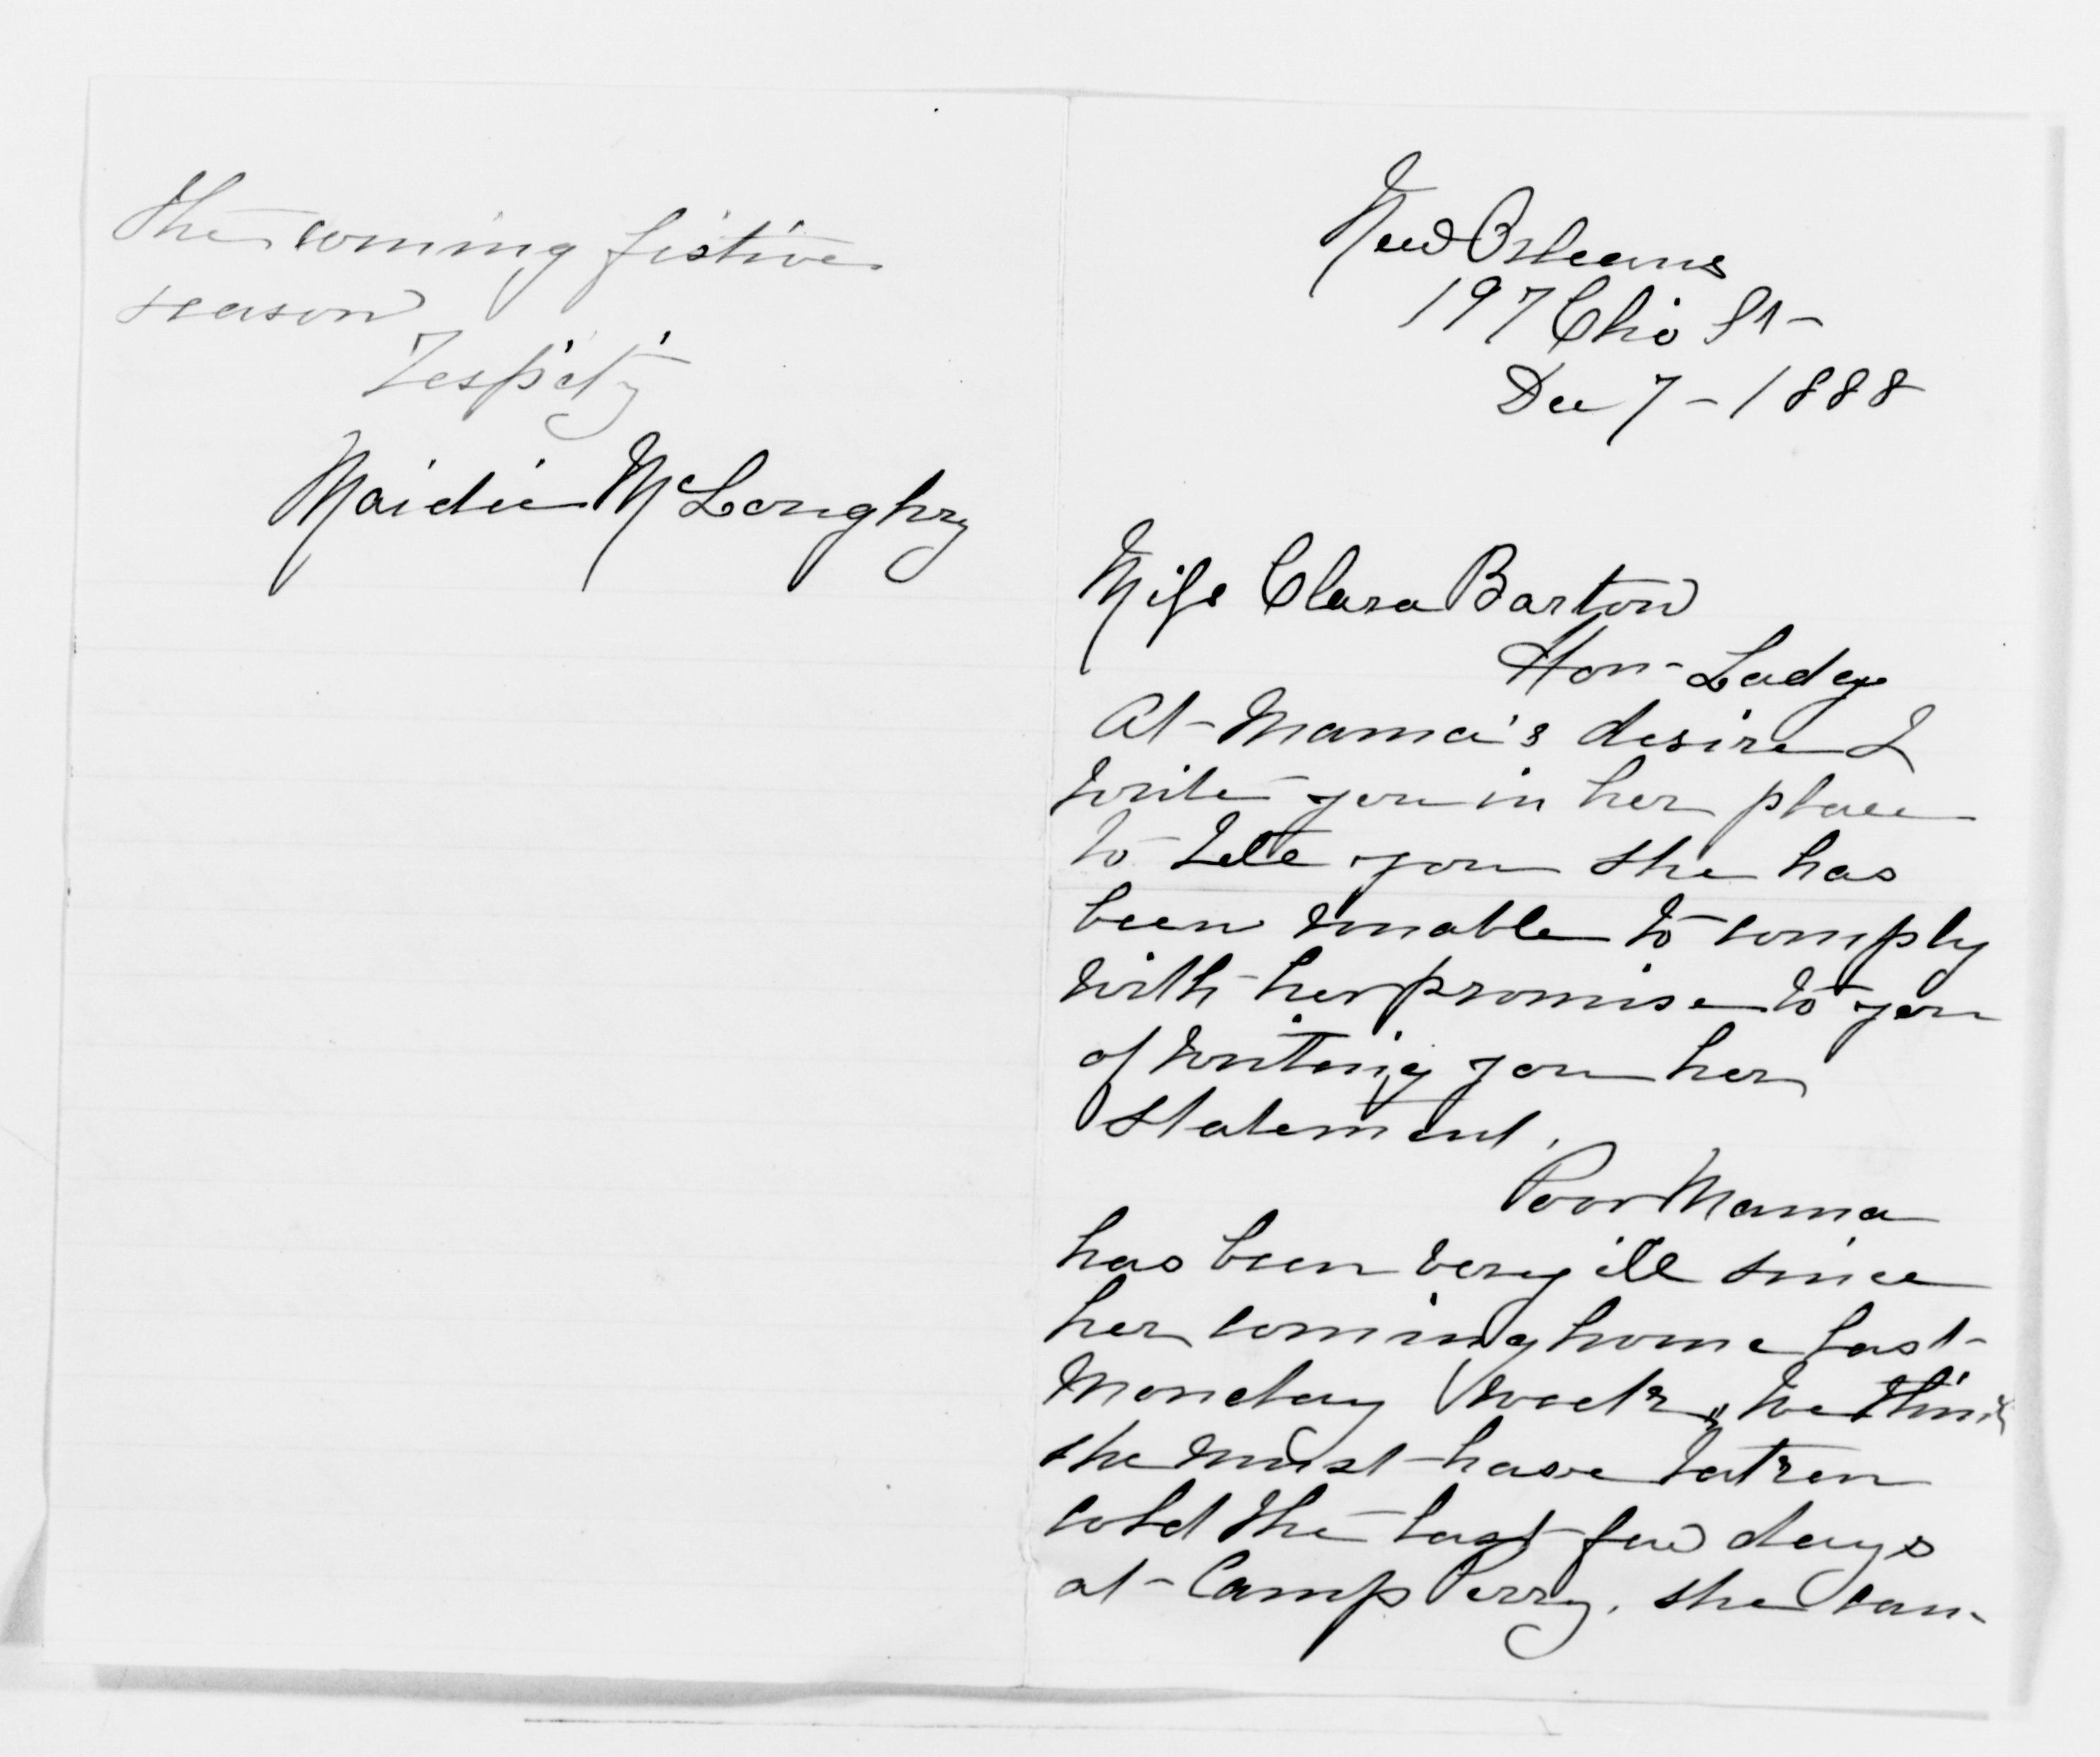 the coming festive
season
Respctfy
Maidie McLoughry
New Orleans
197 Clio St-
Dec 7 - 1888
Miss Clara Barton
Hon - Lady
At - Mama's desire I
write you in her place
to tell you she has
been unable to comply
with her promise to you
of writing you her
statement.
Poor Mama
has been very ill since
her coming home last-
Monday week, we think
she must - have taken
cold the last few days
at - Camp Perry. she can-